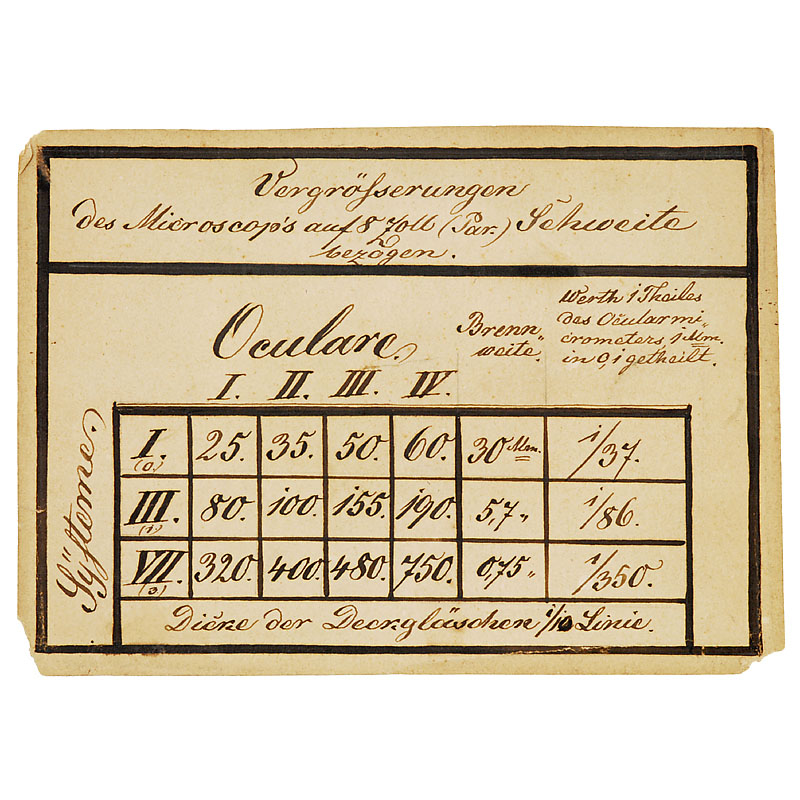 Vergröſserungen
des Microscop's auf 8 Zoll (Par.) Sehweite
bezogen.
Oculare
Brenn„
weite.
Werth 1 Theiles
des Ocularmi„
crometers, 1 Mm.
in 0,1 getheilt.
I. II. III. IV.
Syſteme.
I. (0.) 25. 35. 50. 60. 30 Mm. 1/37.
III. (1.) 80. 100. 155. 190. 5,7 „ 1/86.
VII. (2.) 320. 400. 480. 750. 0,75 „ 1/350.
Dicke der Deckgläschen 1/10 Linie.